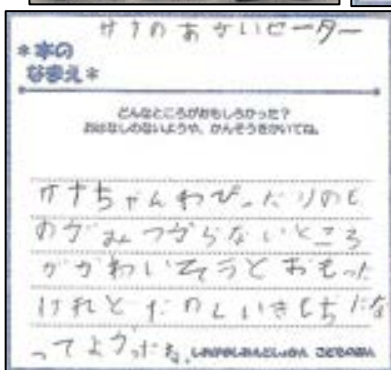 サナのあかいセーター
*本の
なまえ*
どんなところがおもしろかった?
おはなしのないようや、かんそうをかいてね。
サナちゃんわぴったりのも
のがみつからないところ
がかわいそうとおもった
けれどたのしいきもちにな
ってよかったね。